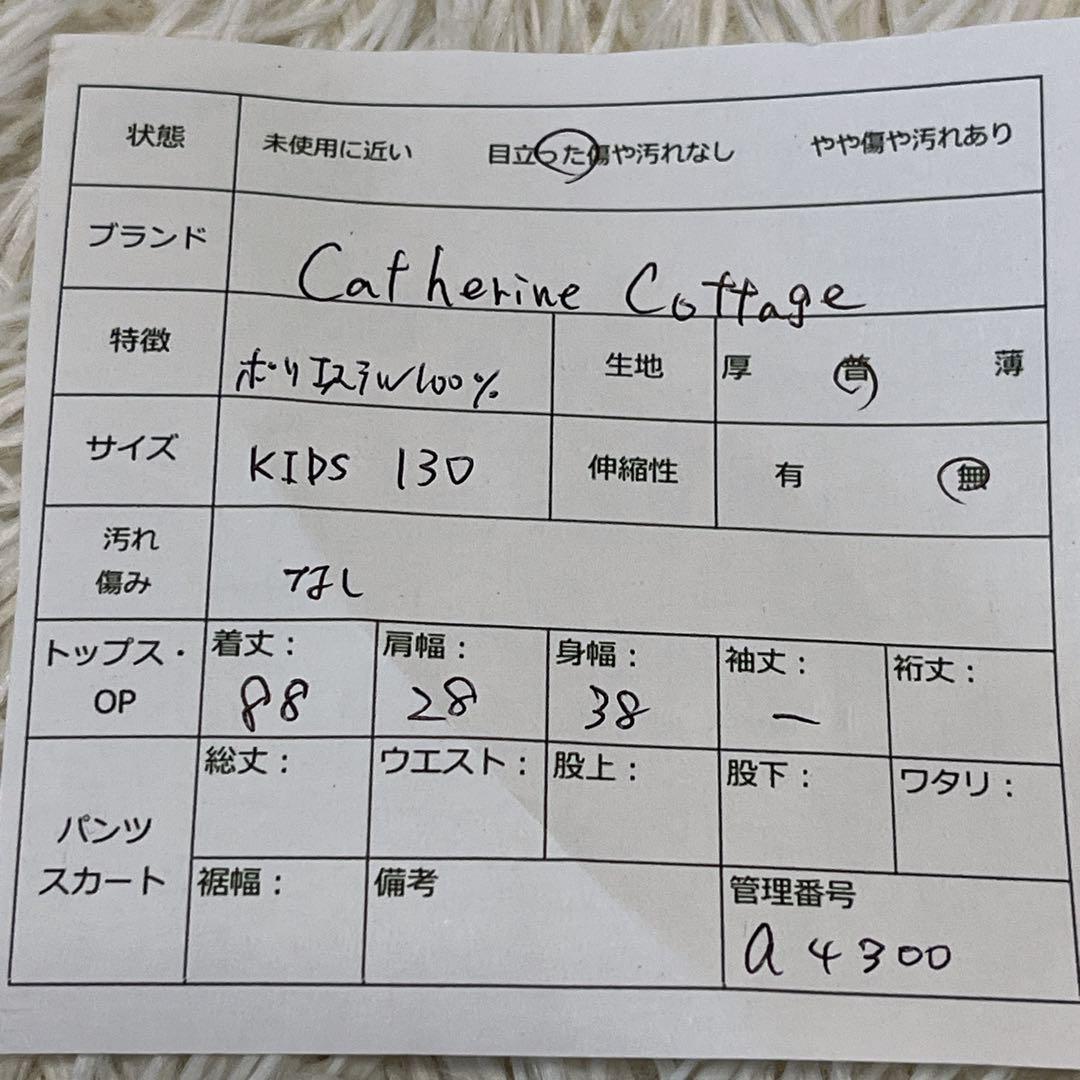 状態 未使用に近い 目立った傷や汚れなし やや傷や汚れあり
ブランド Catherine Cottage
特徴 ポリエステル100% 生地 厚 普 薄
サイズ KIDS 130 伸縮性 有 無
汚れ
傷み なし
トップス・
OP
着丈: 肩幅: 身幅: 袖丈: 裄丈:
88 28 38 ー
パンツ
スカート
総丈: ウエスト: 股上: 股下: ワタリ:
裾幅: 備考 管理番号
a 4300